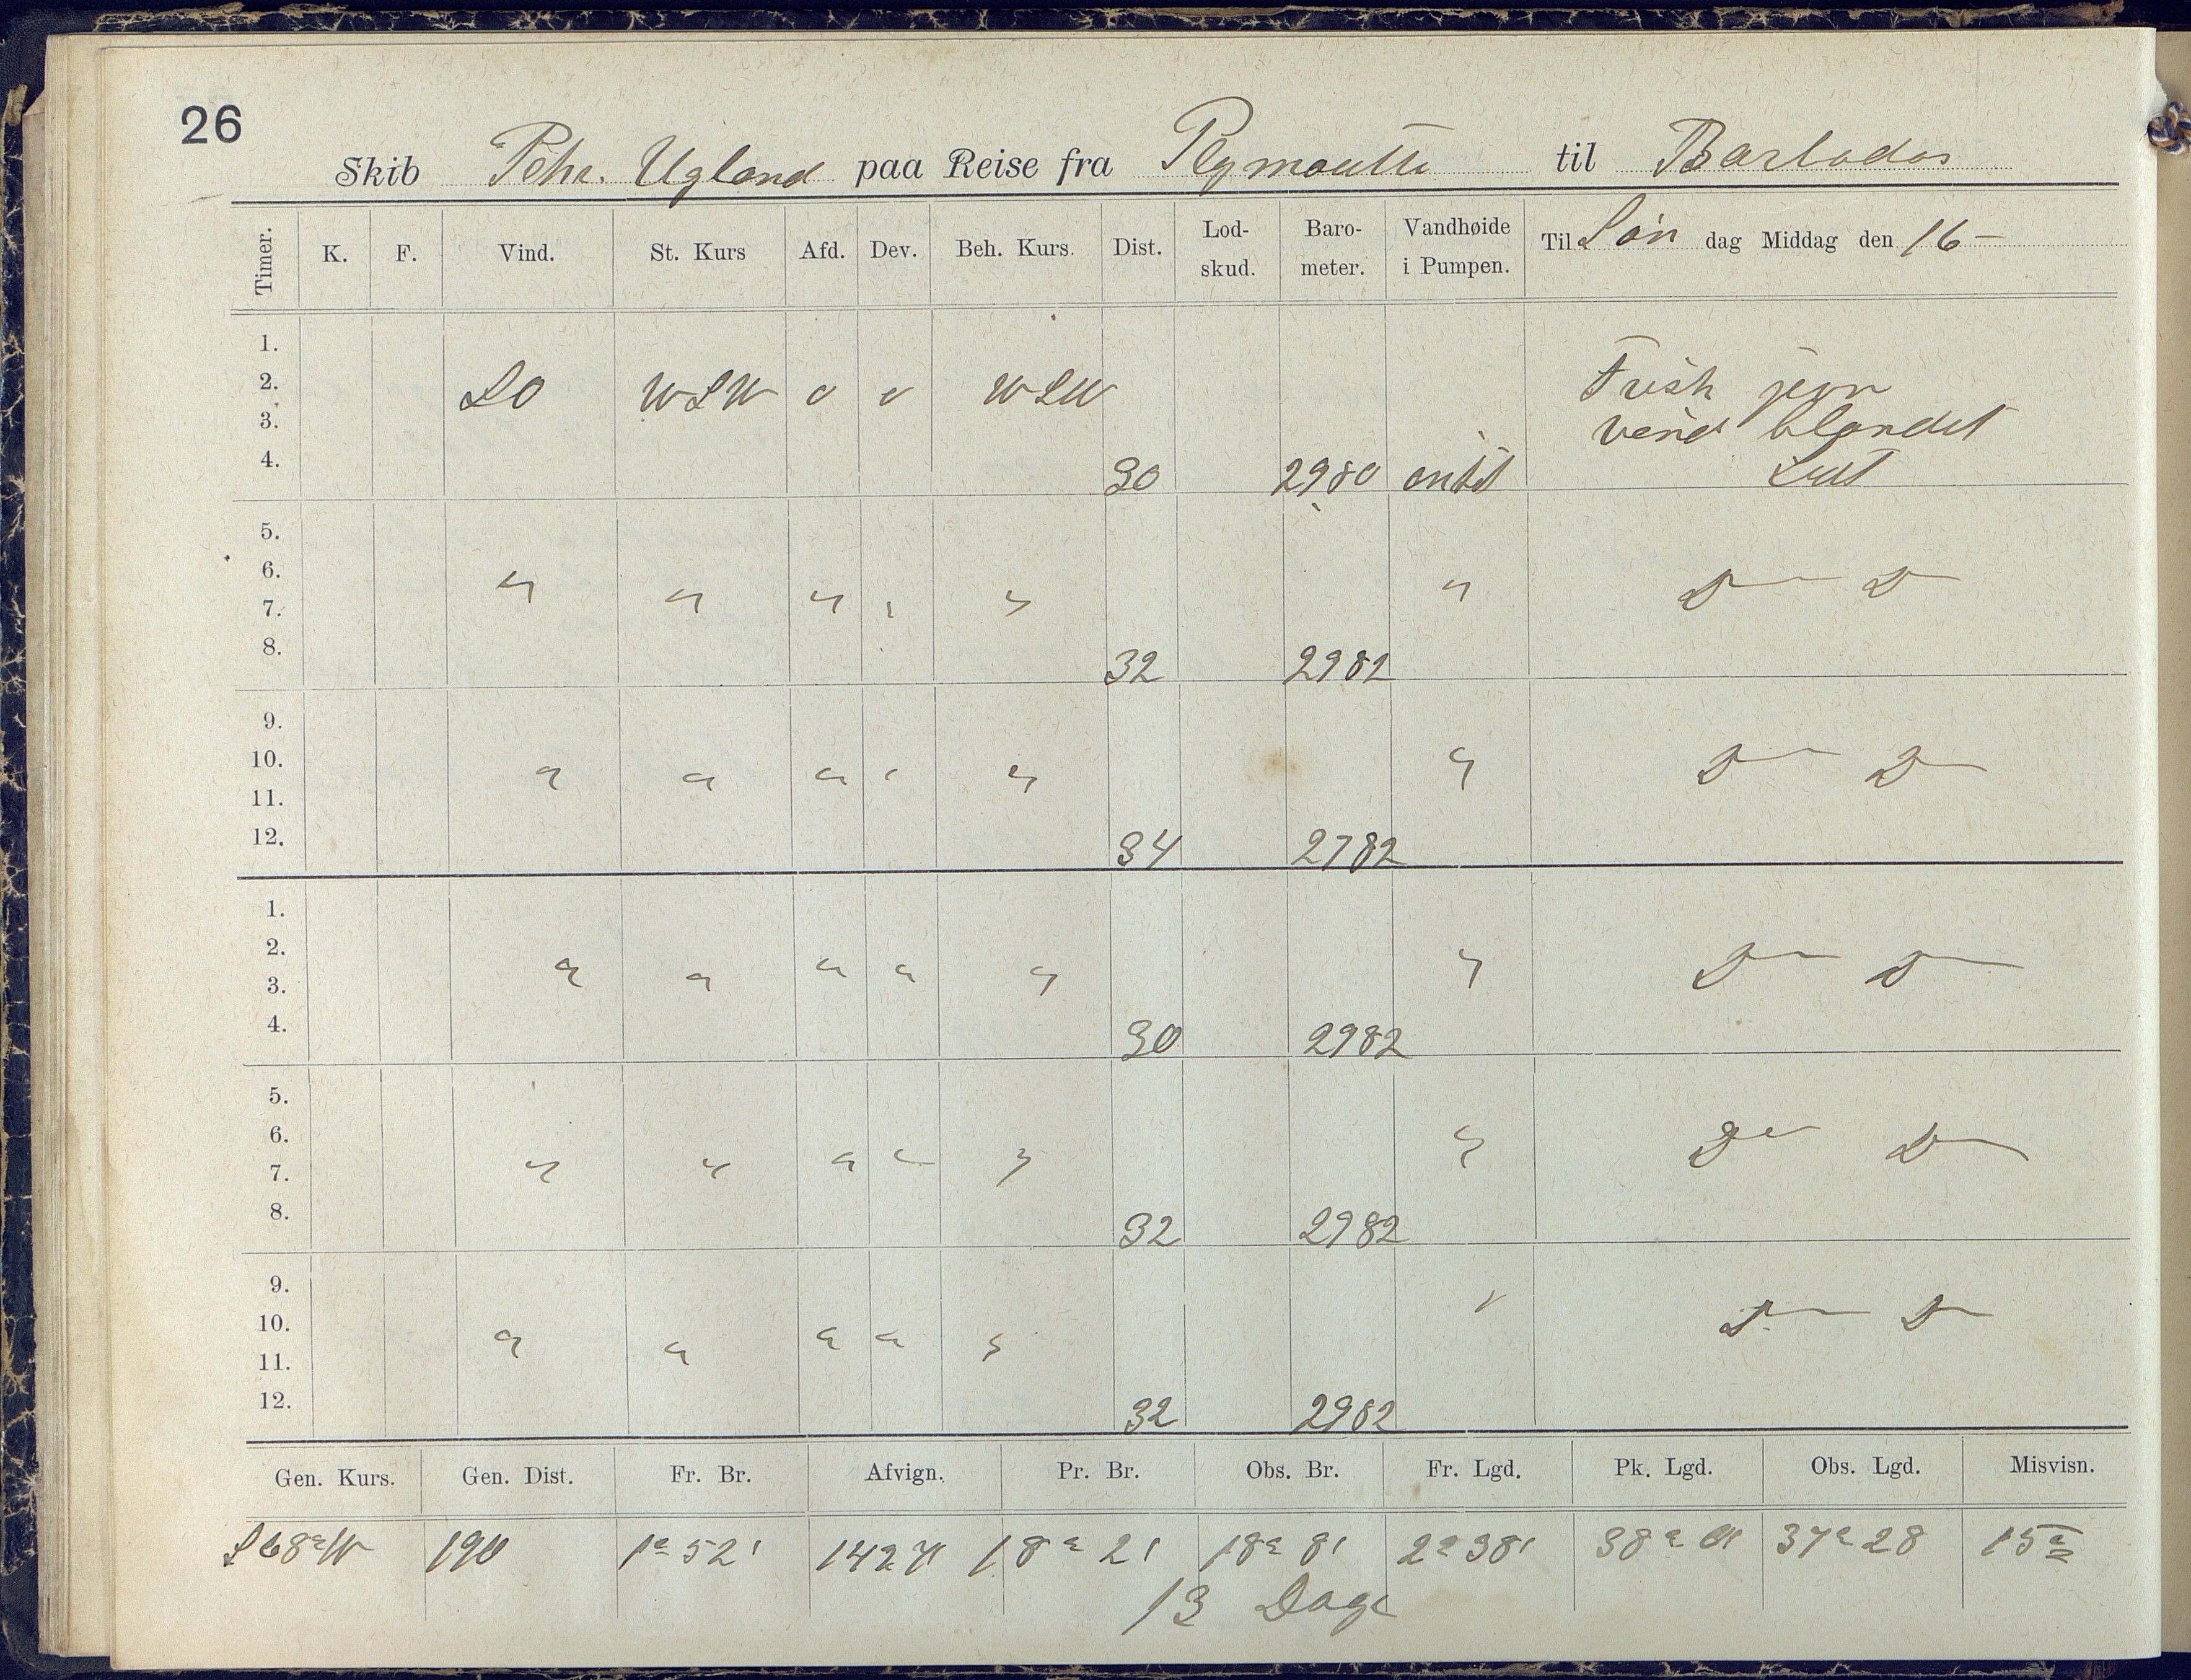 26
Skib Pehr. Ugland paa Reise fra Plymouth til Barbados
Timer. K. F. Vind. St. Kurs Afd. Dev. Beh. Kurs. Dist. Lod-skud. Baro-meter. Vandhøide i Pumpen. Til Søn dag Middag den 16 –
1.
2. SO WSW " " WSW Frisk jevn
3. vind blandet
4. 30 2980 entet Luft
5.
6. " " " " " " D — D —
7.
8. 32 2982
9.
10. " " " " " " D — D —
11.
12. 34 2782
1.
2. " " " " " " D — D —
3.
4. 30 2982
5.
6. " " " " " " D — D —
7.
8. 32 2982
9.
10. " " " " " " D — D —
11.
12. 32 2982
Gen. Kurs. Gen. Dist. Fr. Br. Afvign. Pr. Br. Obs. Br. Fr. Lgd. Pk. Lgd. Obs. Lgd. Misvisn.
S 68° W 190 1° 52' 18° 21 18° 8' 2° 38' 37° 28 15°
13 Dage